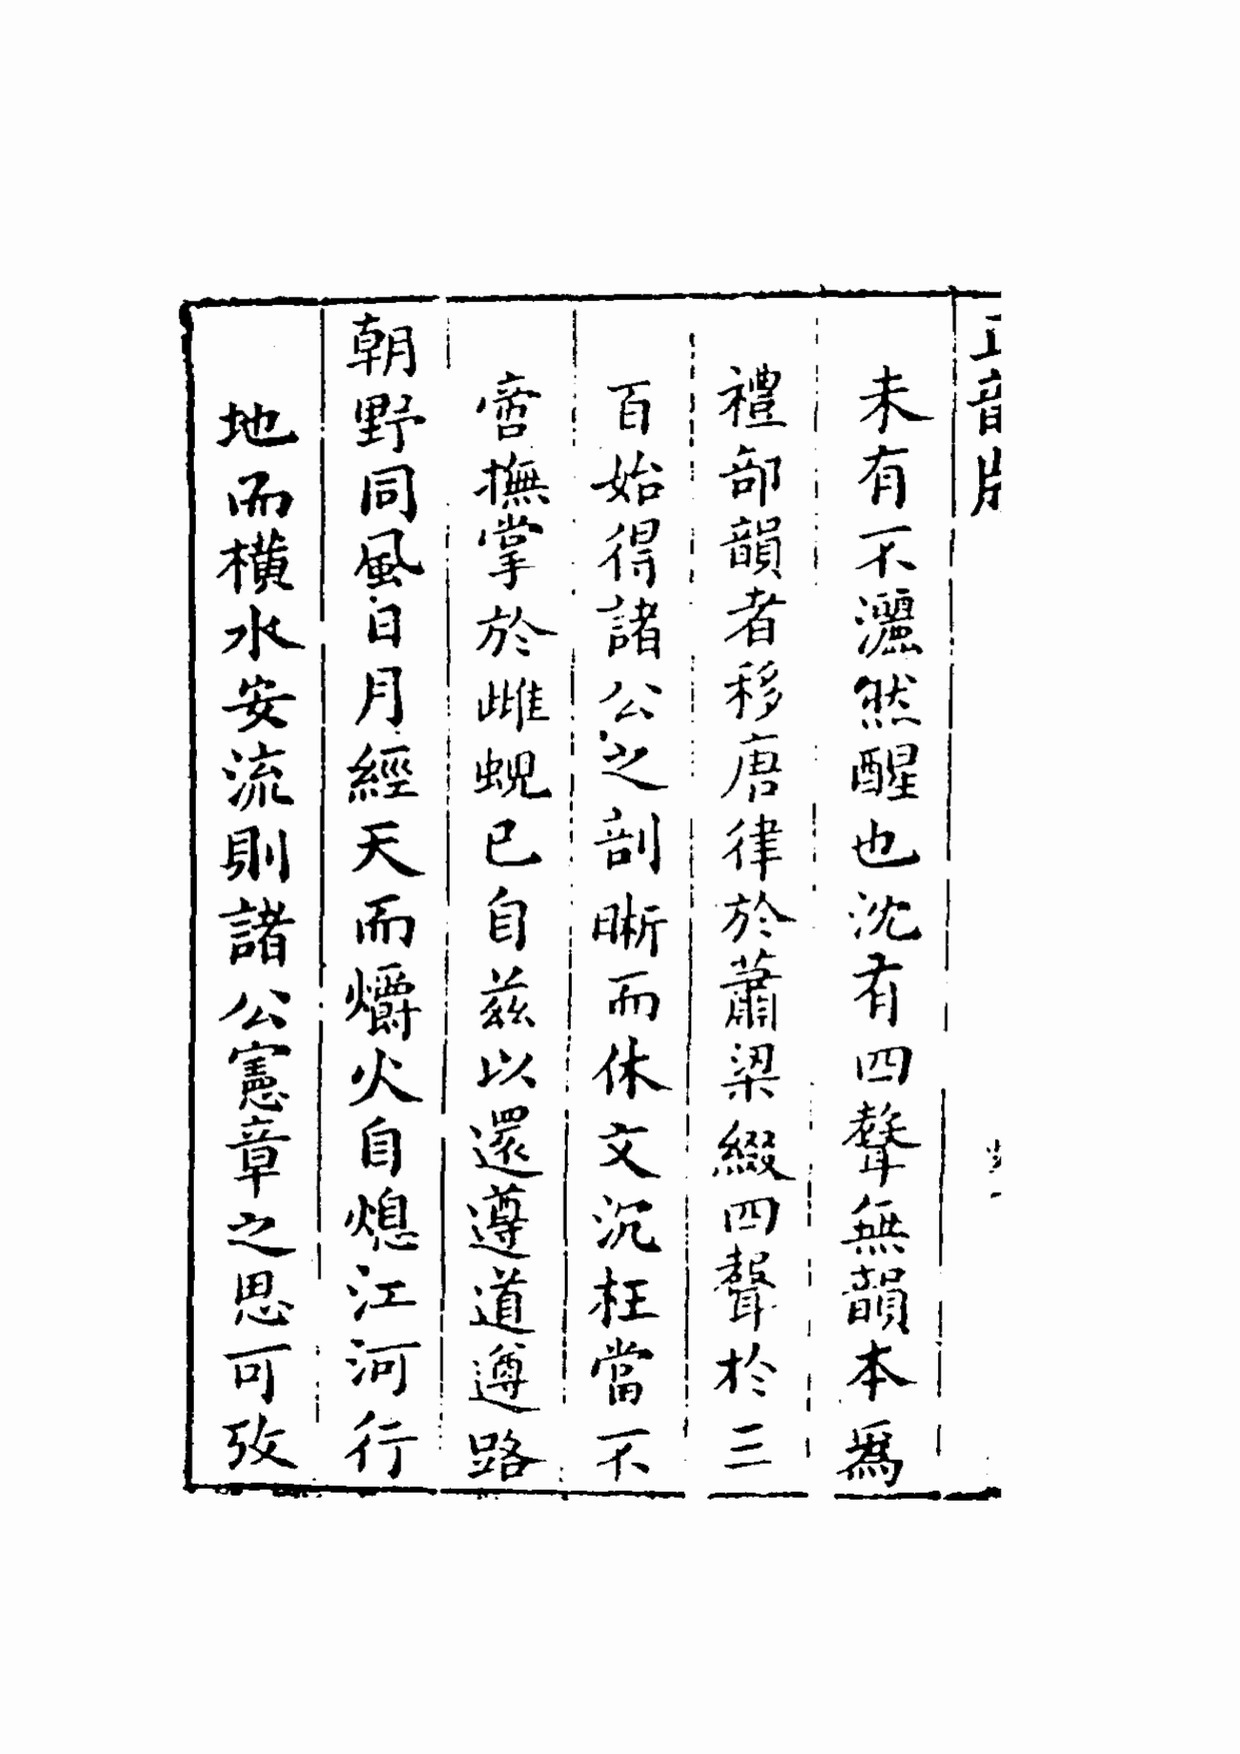 正韻
未有不灑然醒也沈有四聲無韻本爲
禮部韻者移唐律於蕭梁綴四聲於三
百始得諸公之剖晣而休文沉枉當不
啻撫掌於雌蜺已自茲以還遵道遵路
朝野同風日月經天而爝火自熄江河行
地而橫水安流則諸公憲章之思可攷